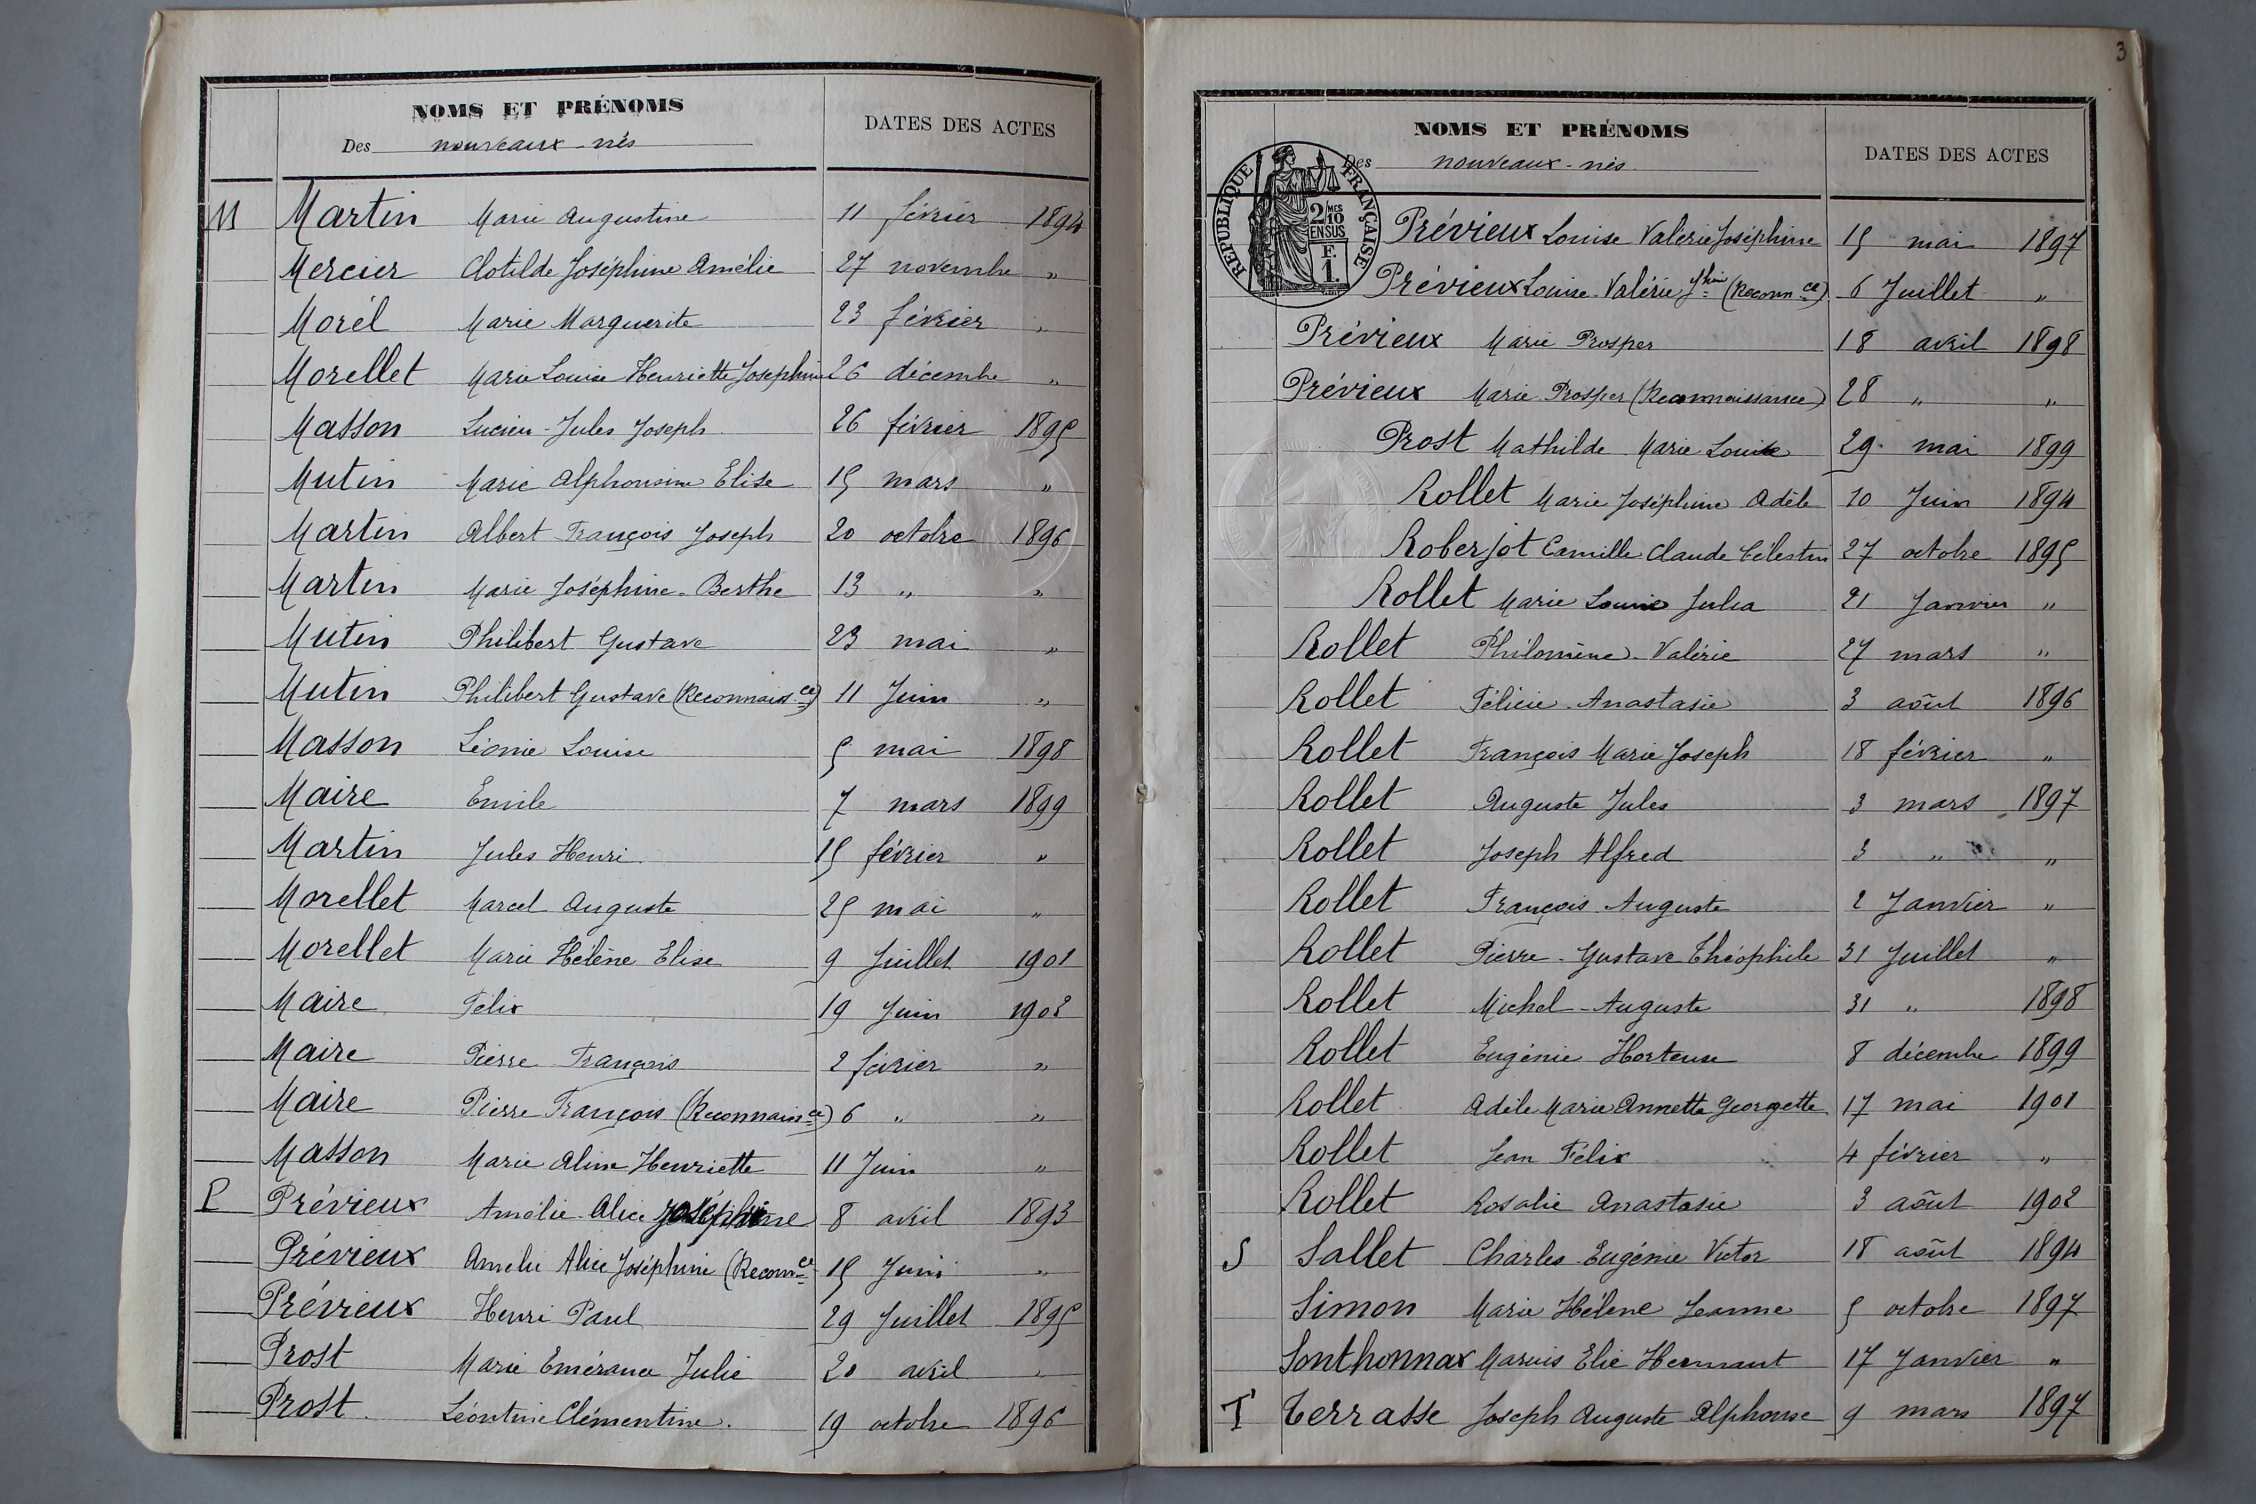 NOMS ET PRÉNOMS
Des nouveaux-nés
DATES DES ACTES
M Martin Marie Augustine 11 février 1894
Mercier Clotilde Joséphine Amélie 27 novembre "
Morél Marie Marguerite 23 février "
Morellet Marie Louise Henriette Josephine 26 décembre "
Masson Lucien-Jules Joseph 26 février 1895
Mutin Marie Alphonsine Elise 15 mars "
Martin Albert François Joseph 20 octobre 1896
Martin Marie Joséphine-Berthe 13 " "
Mutin Philibert Gustave 23 mai "
Mutin Philibert Gustave (Reconnaiss.ce) 11 Juin "
Masson Léonie Louise 5 mai 1898
Maire Emile 7 mars 1899
Martin Jules Henri 15 février "
Morellet Marcel Auguste 25 mai "
Morellet Marie Hélène Elise 9 Juillet 1901
Maire Félix 19 Juin 1902
Maire Pierre François 2 février "
Maire Pierre François (Reconnaiss.ce) 6 " "
Masson Marie Aline Henriette 11 Juin "
P Prévieux Amélie-Alice Joséphine 8 avril 1893
Prévieux Amelie Alice Joséphine (Reconn.ce) 15 Juin "
Prévieux Henri Paul 29 Juillet 1895
Prost Marie Emérance Julie 20 avril "
Prost Léontine Clémentine. 19 octobre 1896
3
NOMS ET PRÉNOMS
Des nouveaux-nés
DATES DES ACTES
RÉPUBLIQUE FRANÇAISE
2/10MES
EN SUS
F.
1.
Prévieux Louise Valérie Joséphine 15 mai 1897
Prévieux Louise Valérie Jphine (Reconn.ce) 6 Juillet "
Prévieux Marie Prosper 18 avril 1898
Prévieux Marie Prosper (Reconnaissance) 28 " "
Prost Mathilde Marie Louise 29 mai 1899
Rollet Marie Joséphine Adèle 10 Juin 1894
Roberjot Camille Claude Célestin 27 octobre 1895
Rollet Marie Louise Julia 21 Janvier "
Rollet Philomène-Valérie 27 mars "
Rollet Félicie Anastasie 3 août 1896
Rollet François Marie Joseph 18 février "
Rollet Auguste Jules 3 mars 1897
Rollet Joseph Alfred 3 " "
Rollet François Auguste 2 Janvier "
Rollet Pierre-Gustave Théophile 31 Juillet "
Rollet Michel-Auguste 31 " 1898
Rollet Eugénie Hortense 8 décembre 1899
Rollet Adèle Marie Annette Georgette 17 mai 1901
Rollet Jean Felix 4 février "
Rollet Rosalie Anastasie 3 août 1902
S Sallet Charles Eugénie Victor 18 août 1894
Simon Marie Hélène Jeanne 5 octobre 1897
Sonthonnax Marius Elie Hermant 17 Janvier "
T Terrasse Joseph Auguste Alphonse 9 mars 1897